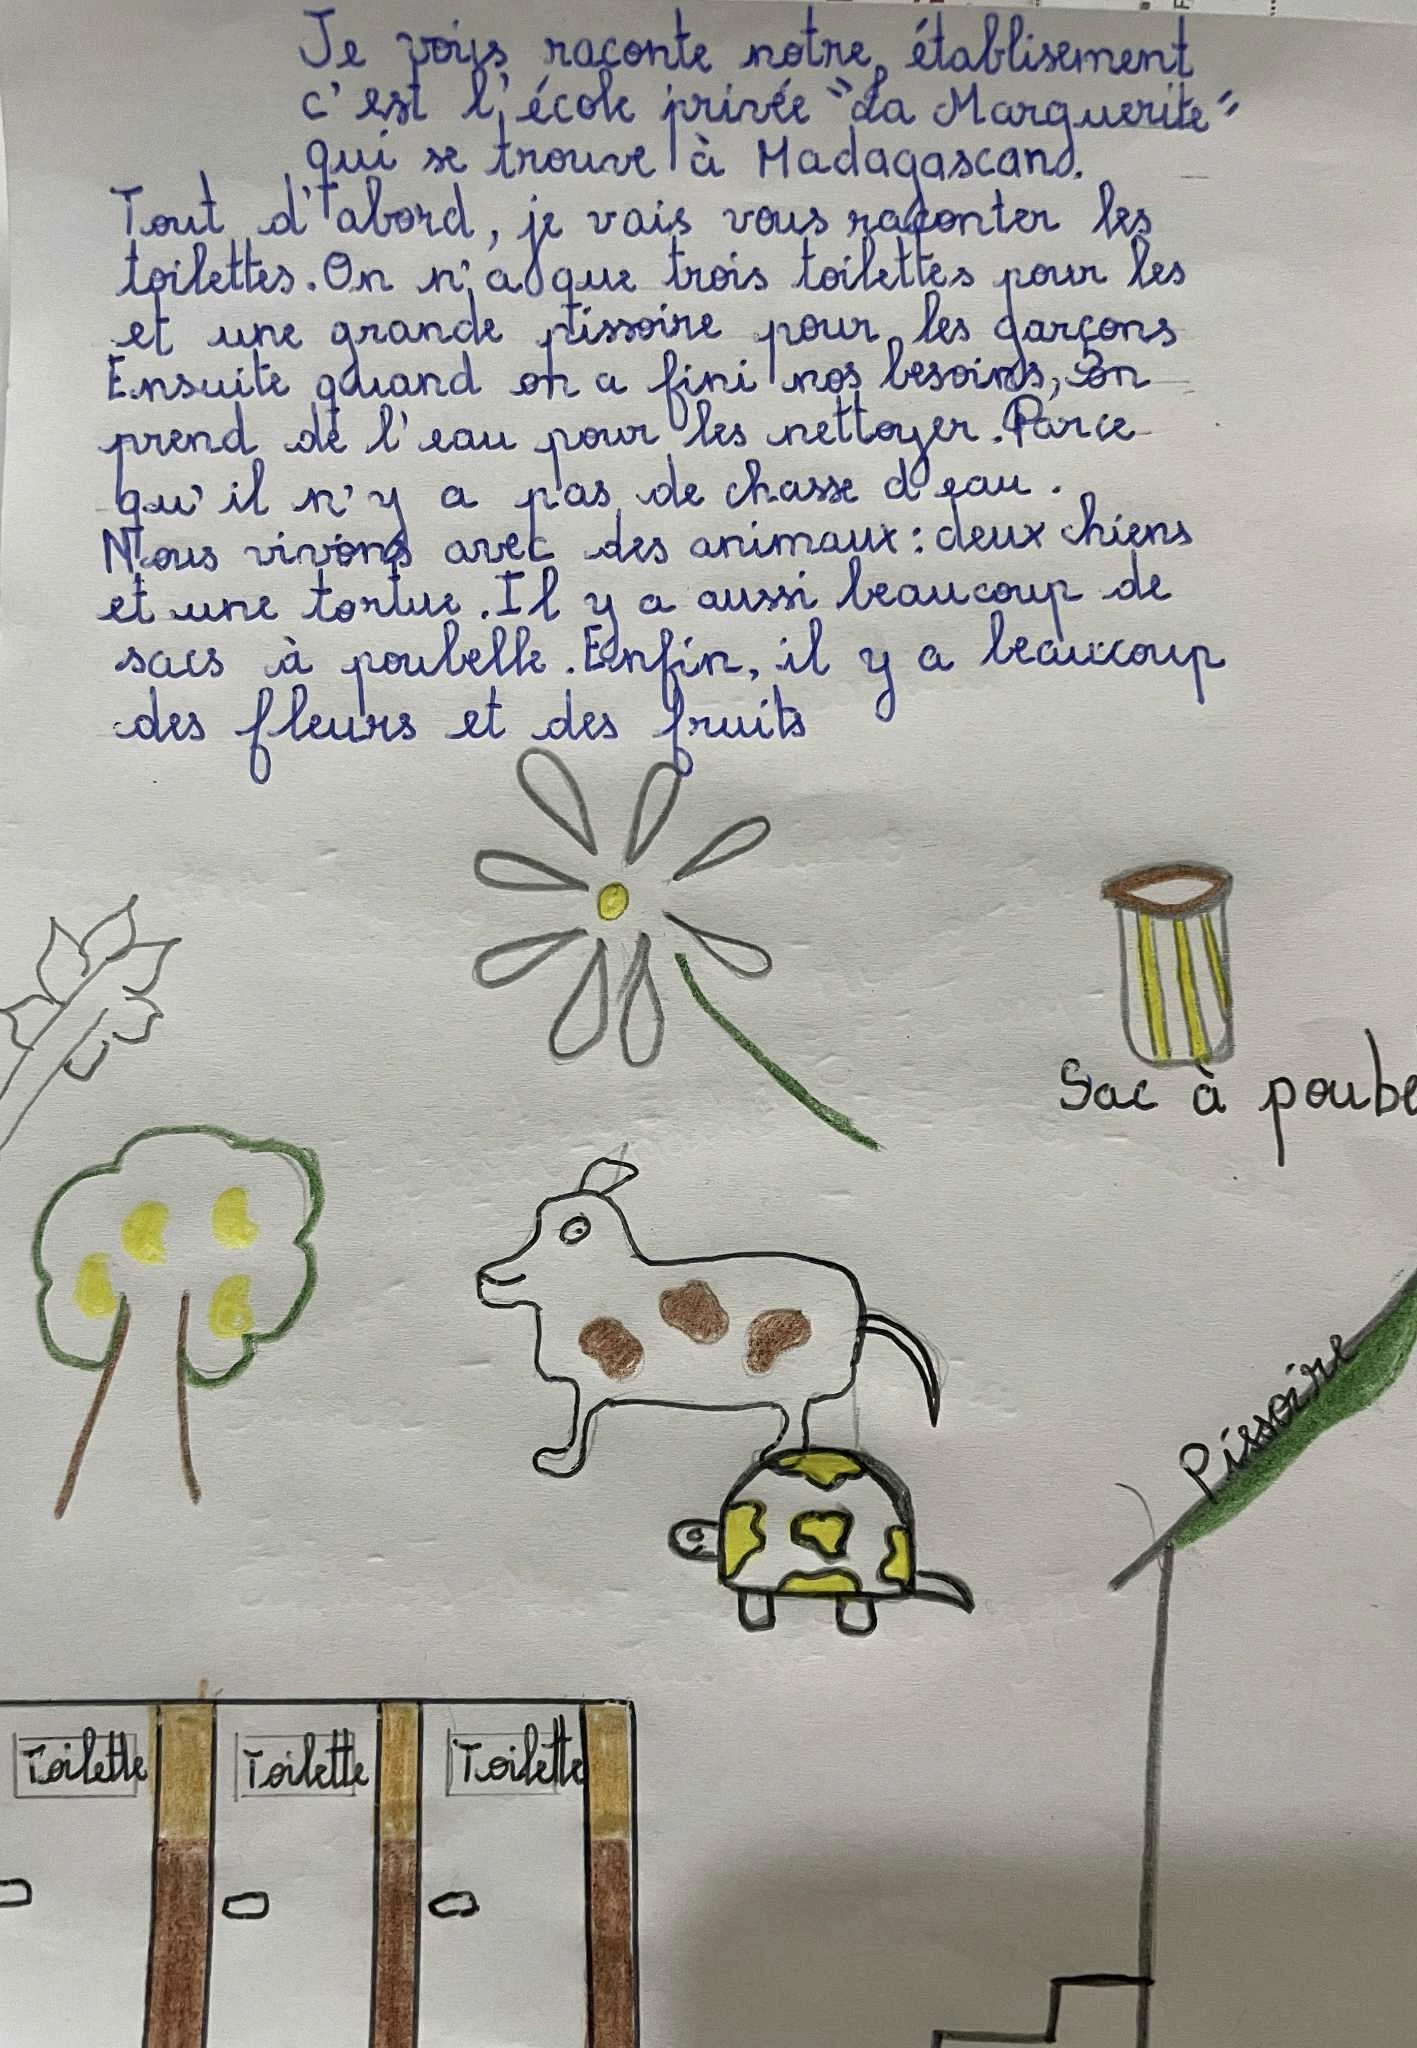 Je vous raconte notre établisement
c'est l'école privée "La Marguerite"
qui se trouve à Madagascand.
Tout d'abord, je vais vous raconter les
toilettes. On n'a que trois toilettes pour les
et une grande pissoire pour les garçons
Ensuite quand on a fini nos besoins, on
prend de l'eau pour les nettoyer. Parce
qu'il n'y a pas de chasse d'eau.
Nous vivons avec des animaux : deux chiens
et une tortue. Il y a aussi beaucoup de
sacs à poubelle. Enfin, il y a beaucoup
des fleurs et des fruits
Sac à poube
Pissoire
Toilette
Toilette
Toilette